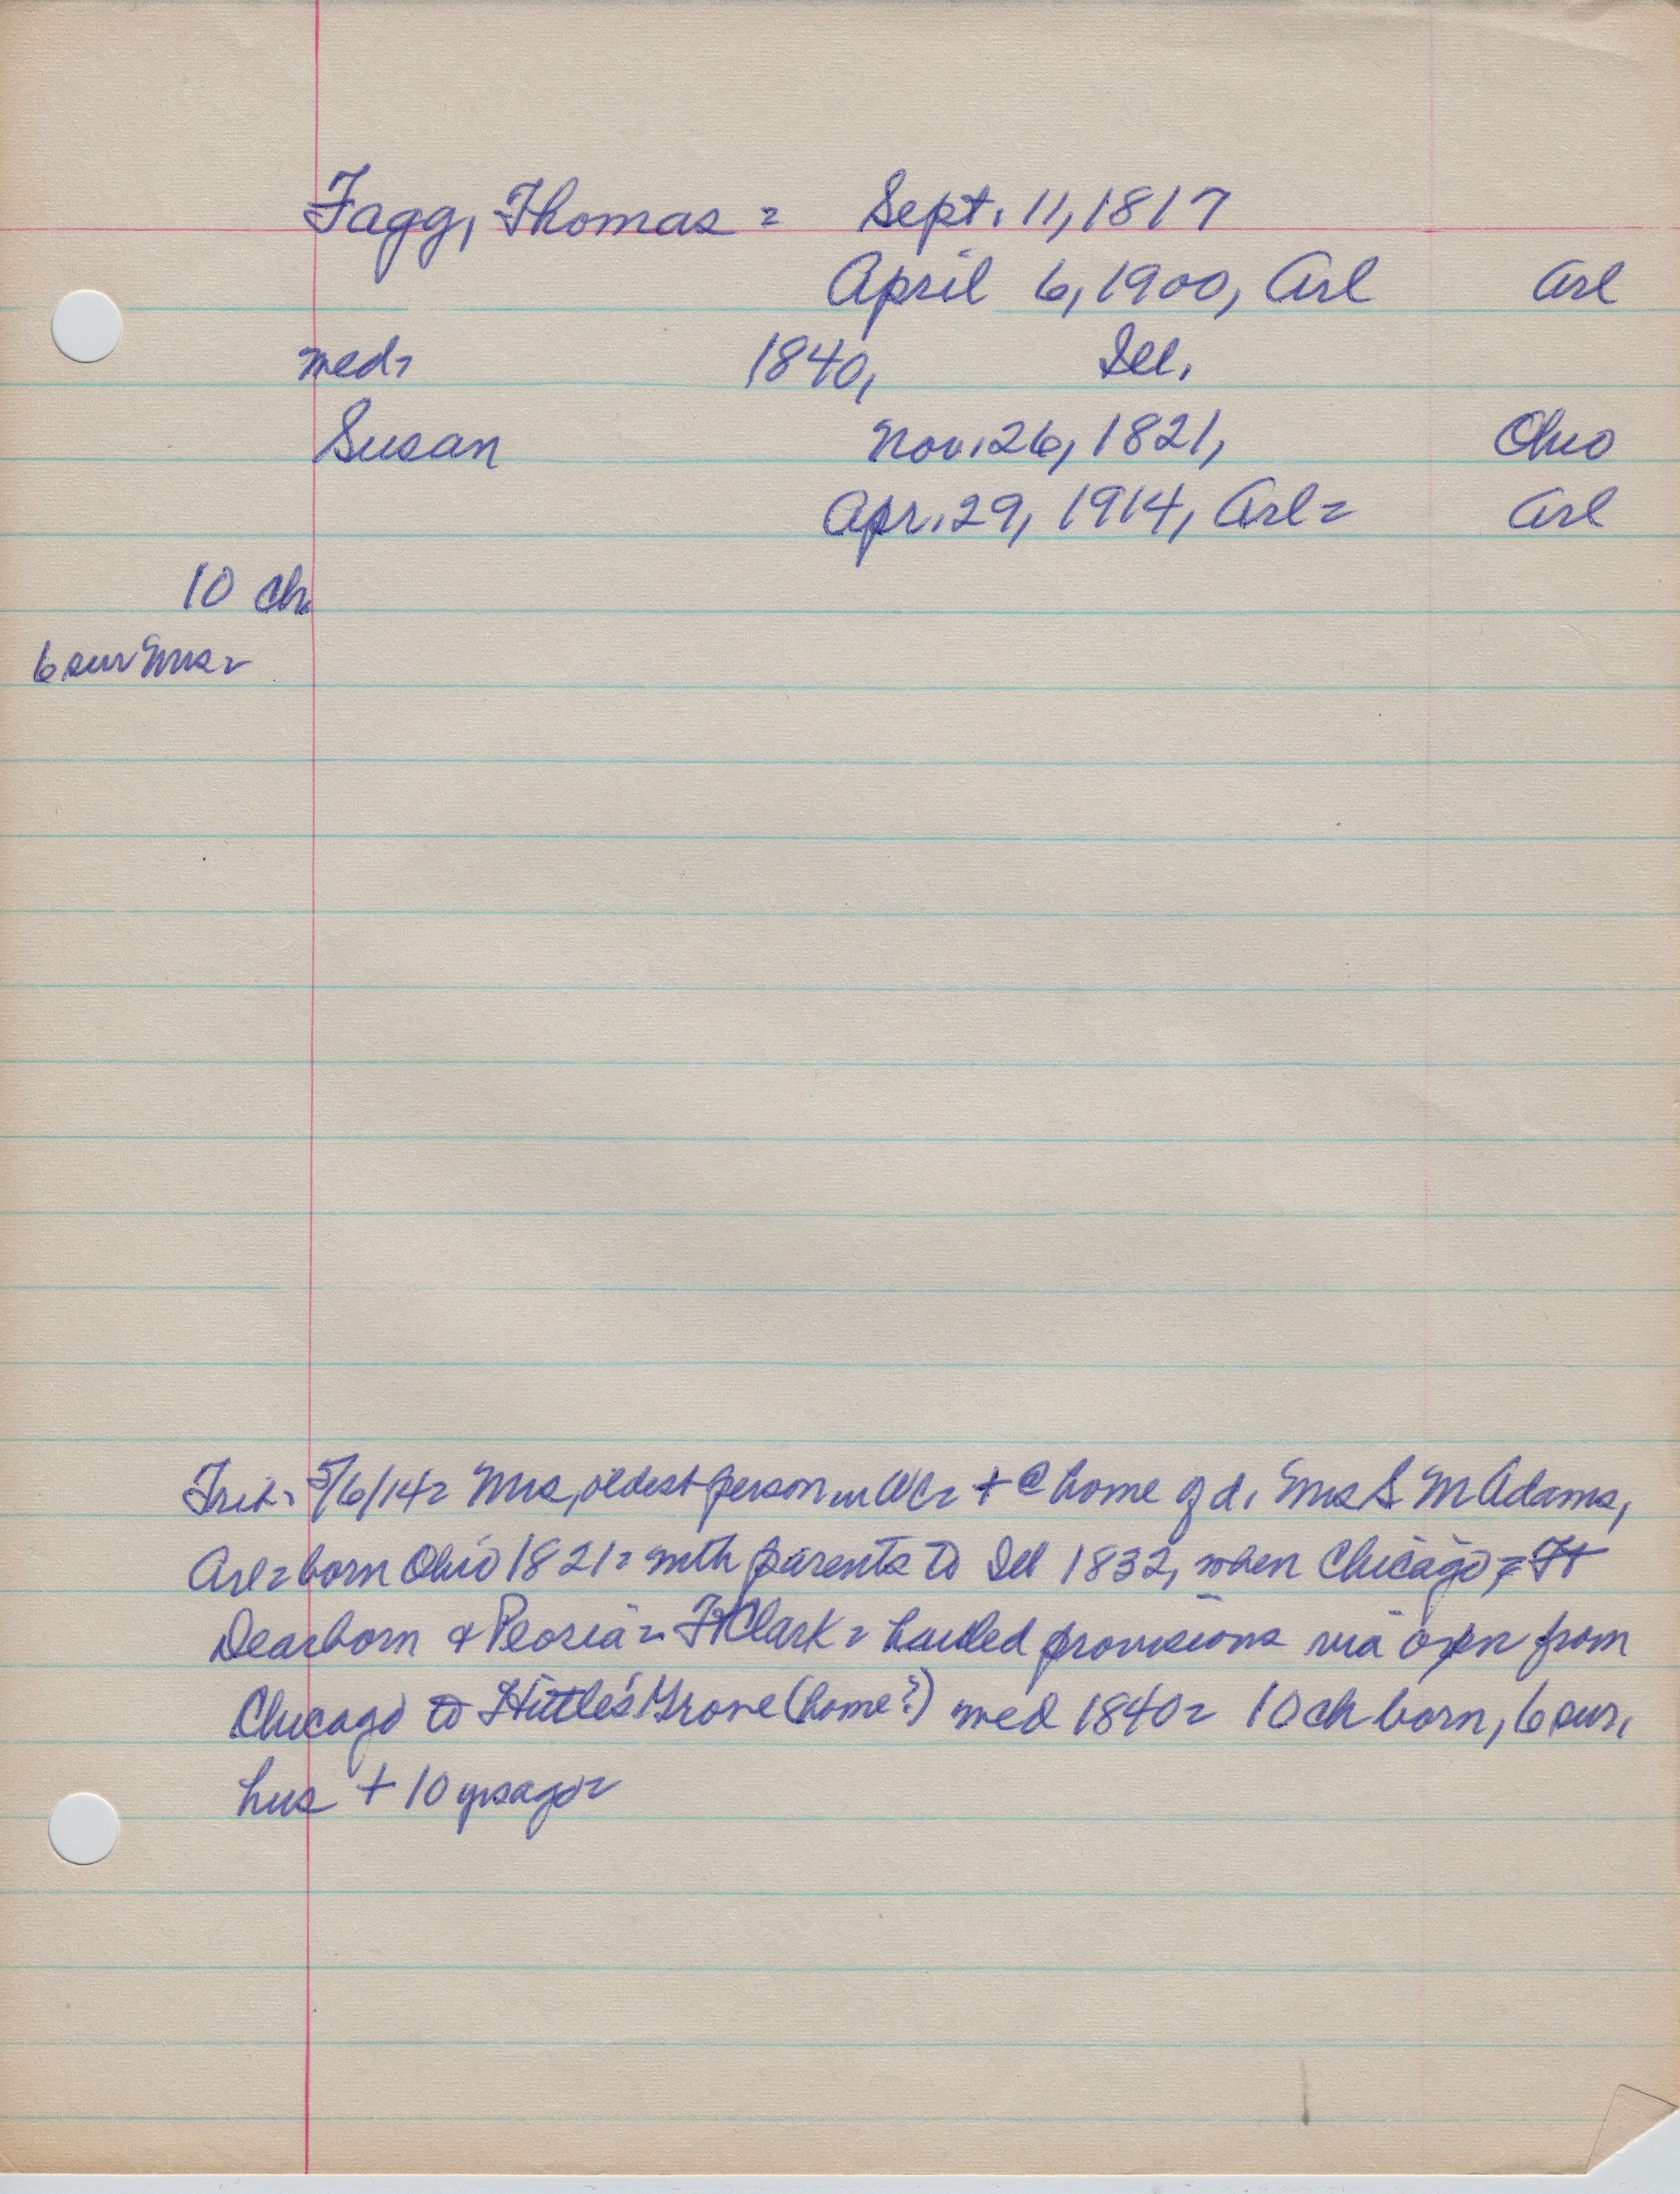 Fagg, Thomas = Sept. 11, 1817
April 6, 1900, Arl Arl
med= 1840, Ill.
Susan Nov. 26, 1821, Ohio
Apr. 29, 1914, Arl= Arl
10 ch
6 sur Mrs=
Trib= 5/6/14= Mrs, oldest person in WC= + @ home of d. Mrs S M Adams,
Arl= born Ohio 1821= with parents to Ill 1832, when Chicago = Ft
Dearborn & Peoria = Ft Clark = hauled provisions via oxen from
Chicago to Hittle's Grove (home?) med 1840= 10 ch born, 6 sur.
hus + 10 yrs ago=